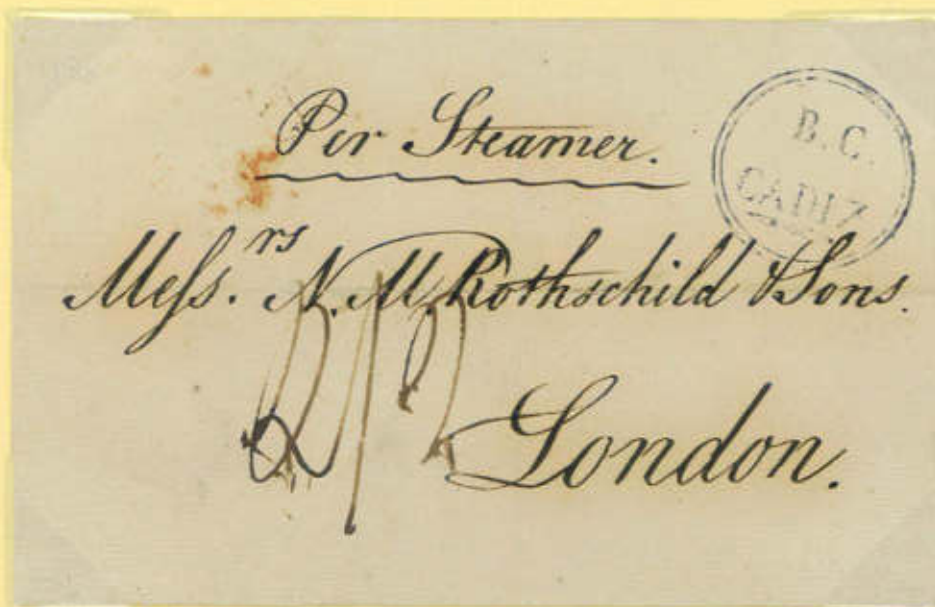 Per Steamer.
B.C.
CADIZ
Mess.rs N. M. Rothschild & Sons.
2/2
London.